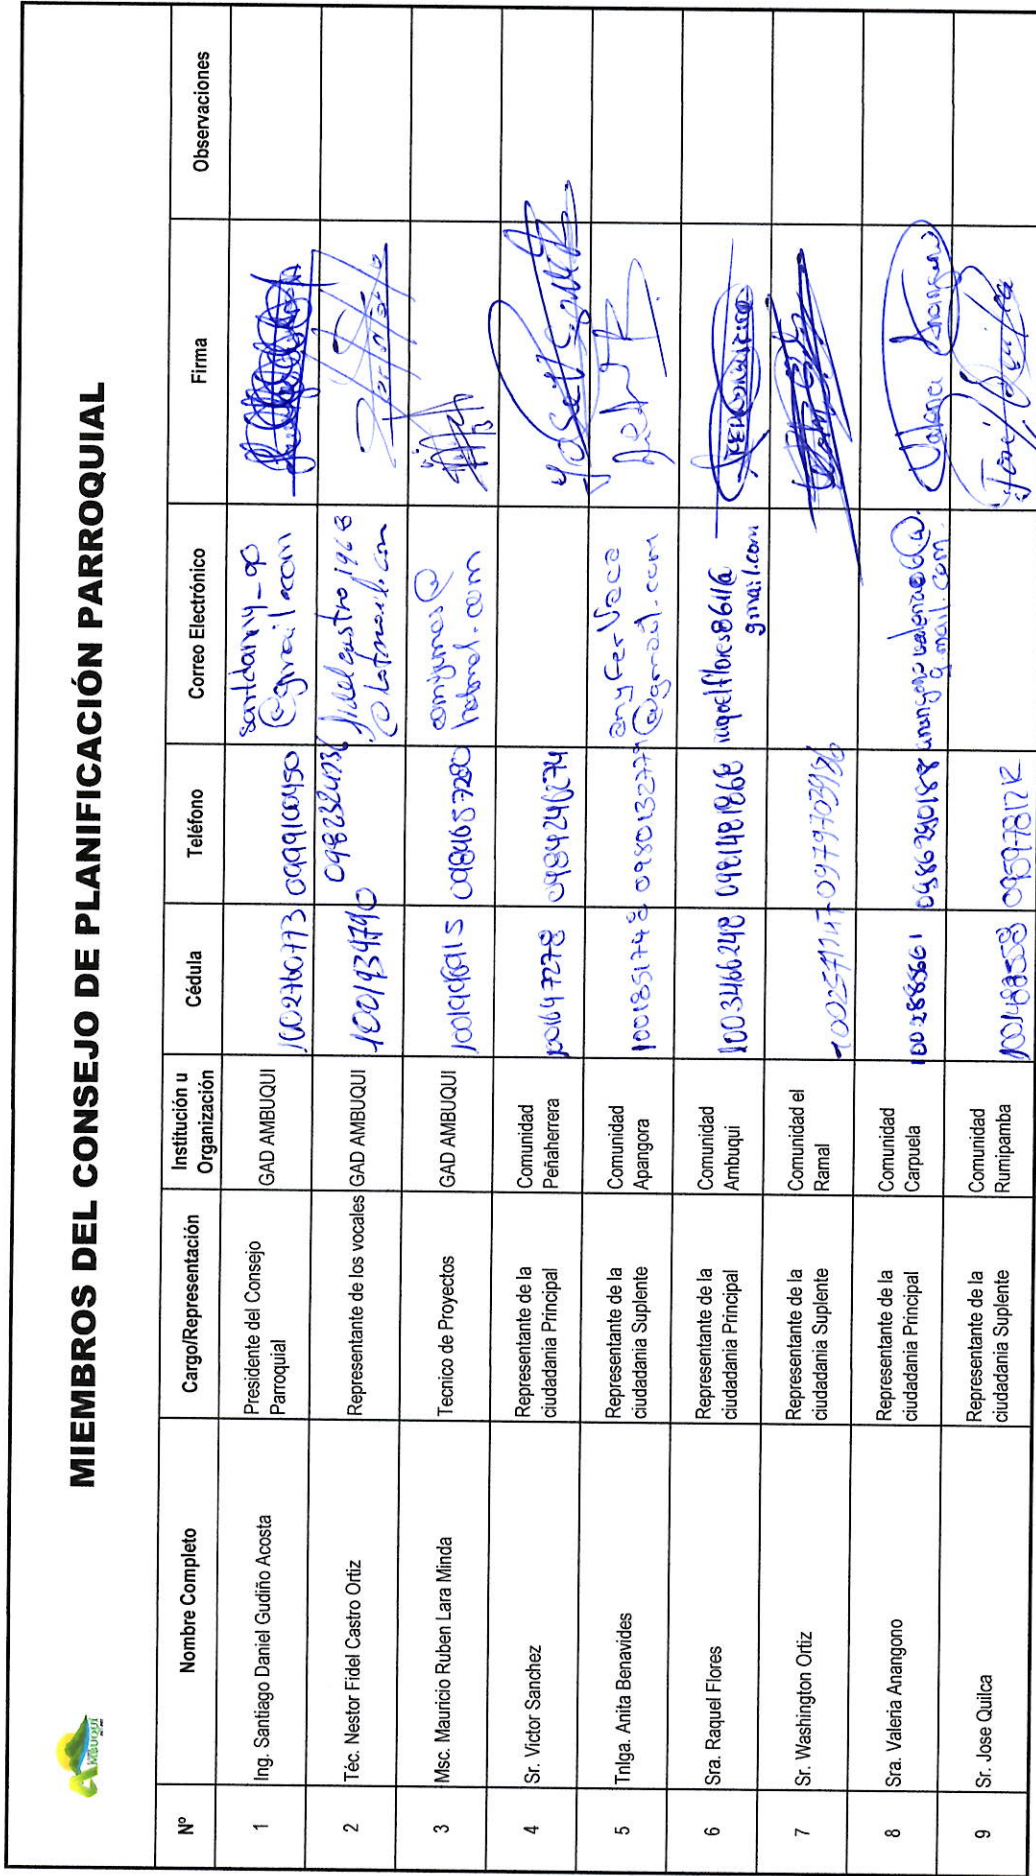 AMBUQUI
MIEMBROS DEL CONSEJO DE PLANIFICACIÓN PARROQUIAL
Nº Nombre Completo Cargo/Representación Institución u Organización Cédula Teléfono Correo Electrónico Firma Observaciones
1 Ing. Santiago Daniel Gudiño Acosta Presidente del Consejo Parroquial GAD AMBUQUI 1002760773 0999100450
2 Téc. Nestor Fidel Castro Ortiz Representante de los vocales GAD AMBUQUI 1001934790 fidelcastro1968 @hotmail.com
3 Msc. Mauricio Ruben Lara Minda Tecnico de Proyectos GAD AMBUQUI 0984657280
4 Sr. Victor Sanchez Representante de la ciudadania Principal Comunidad Peñaherrera 1001647278 0984246274
5 Tnlga. Anita Benavides Representante de la ciudadania Suplente Comunidad Apangora 1001851748 0980132779 anyfervaca @gmail.com
6 Sra. Raquel Flores Representante de la ciudadania Principal Comunidad Ambuqui 1003466248 0981481868 gmail.com
7 Sr. Washington Ortiz Representante de la ciudadania Suplente Comunidad el Ramal 0979703936
8 Sra. Valeria Anangono Representante de la ciudadania Principal Comunidad Carpuela 1002885661 0986290188 gmail.com. Valeria Anangono
9 Sr. Jose Quilca Representante de la ciudadania Suplente Comunidad Rumipamba 1001488558 0959781212 José Quilca